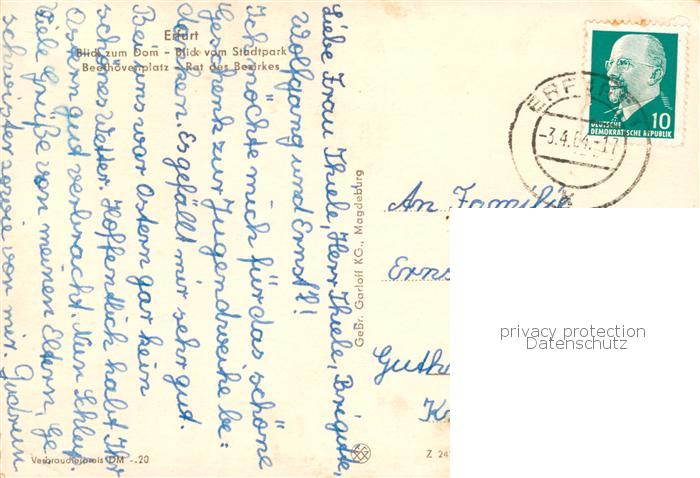 Erfurt
Blick zum Dom - Blick vom Stadtpark
Beethovenplatz - Rat des Bezirkes
Liebe Frau Thiele, Herr Thiele, Brigitte,
Wolfgang und Ernst!
Ich möchte mich für das schöne
Geschenk zur Jugendweihe be-
danken. Es gefällt mir sehr gut.
Bei uns war Ostern gar kein
schönes Wetter. Hoffentlich habt Ihr
Ostern gut verbracht. Nun Schluß.
Viele Grüße von meinen Eltern, Ge-
schwister sowie von mir. Gudrun
Verbraucherpreis DM -.20
Gebr. Garloff KG., Magdeburg
10
DEUTSCHE
DEMOKRATISCHE REPUBLIK
-3.4.64.-17
An Familie
Z 24
privacy protection
Datenschutz